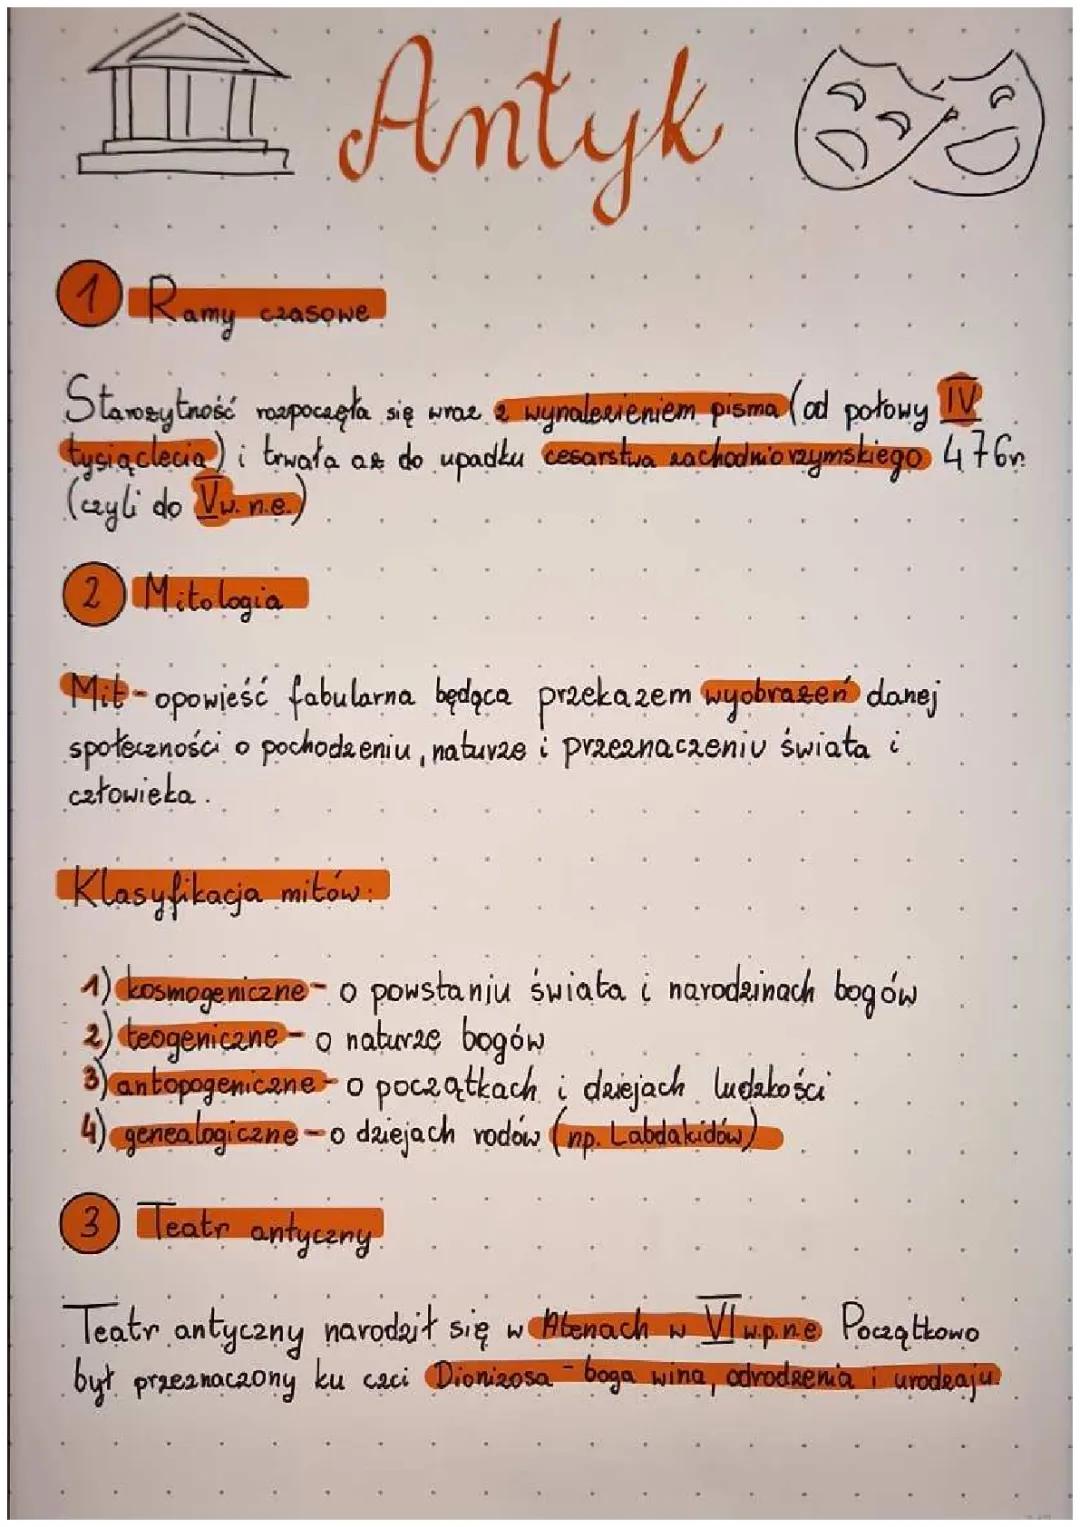 Antyk
1 Ramy czasowe
Starożytność rozpoczęła się wraz z wynalezieniem pisma (od połowy IV
tysiąclecia) i trwała aż do upadku cesarstwa zachodnio rzymskiego 476r.
(czyli do V w. n.e.)
2 Mitologia
Mit - opowieść fabularna będąca przekazem wyobrażeń danej
społeczności o pochodzeniu, naturze i przeznaczeniu świata i
człowieka.
Klasyfikacja mitów:
1) kosmogeniczne - o powstaniu świata i narodzinach bogów
2) teogeniczne - o naturze bogów
3) antopogeniczne - o początkach i dziejach ludzkości
4) genealogiczne - o dziejach rodów (np. Labdakidów)
3 Teatr antyczny
Teatr antyczny narodził się w Atenach w VI w.p.n.e Początkowo
był przeznaczony ku czci Dionizosa - boga wina, odrodzenia i urodzaju.